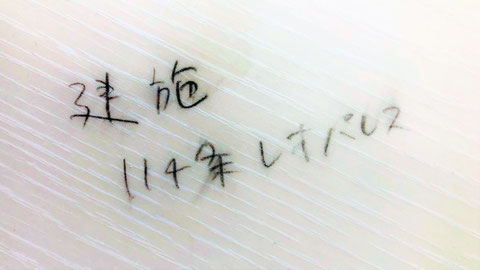 建施
114条レオパレス